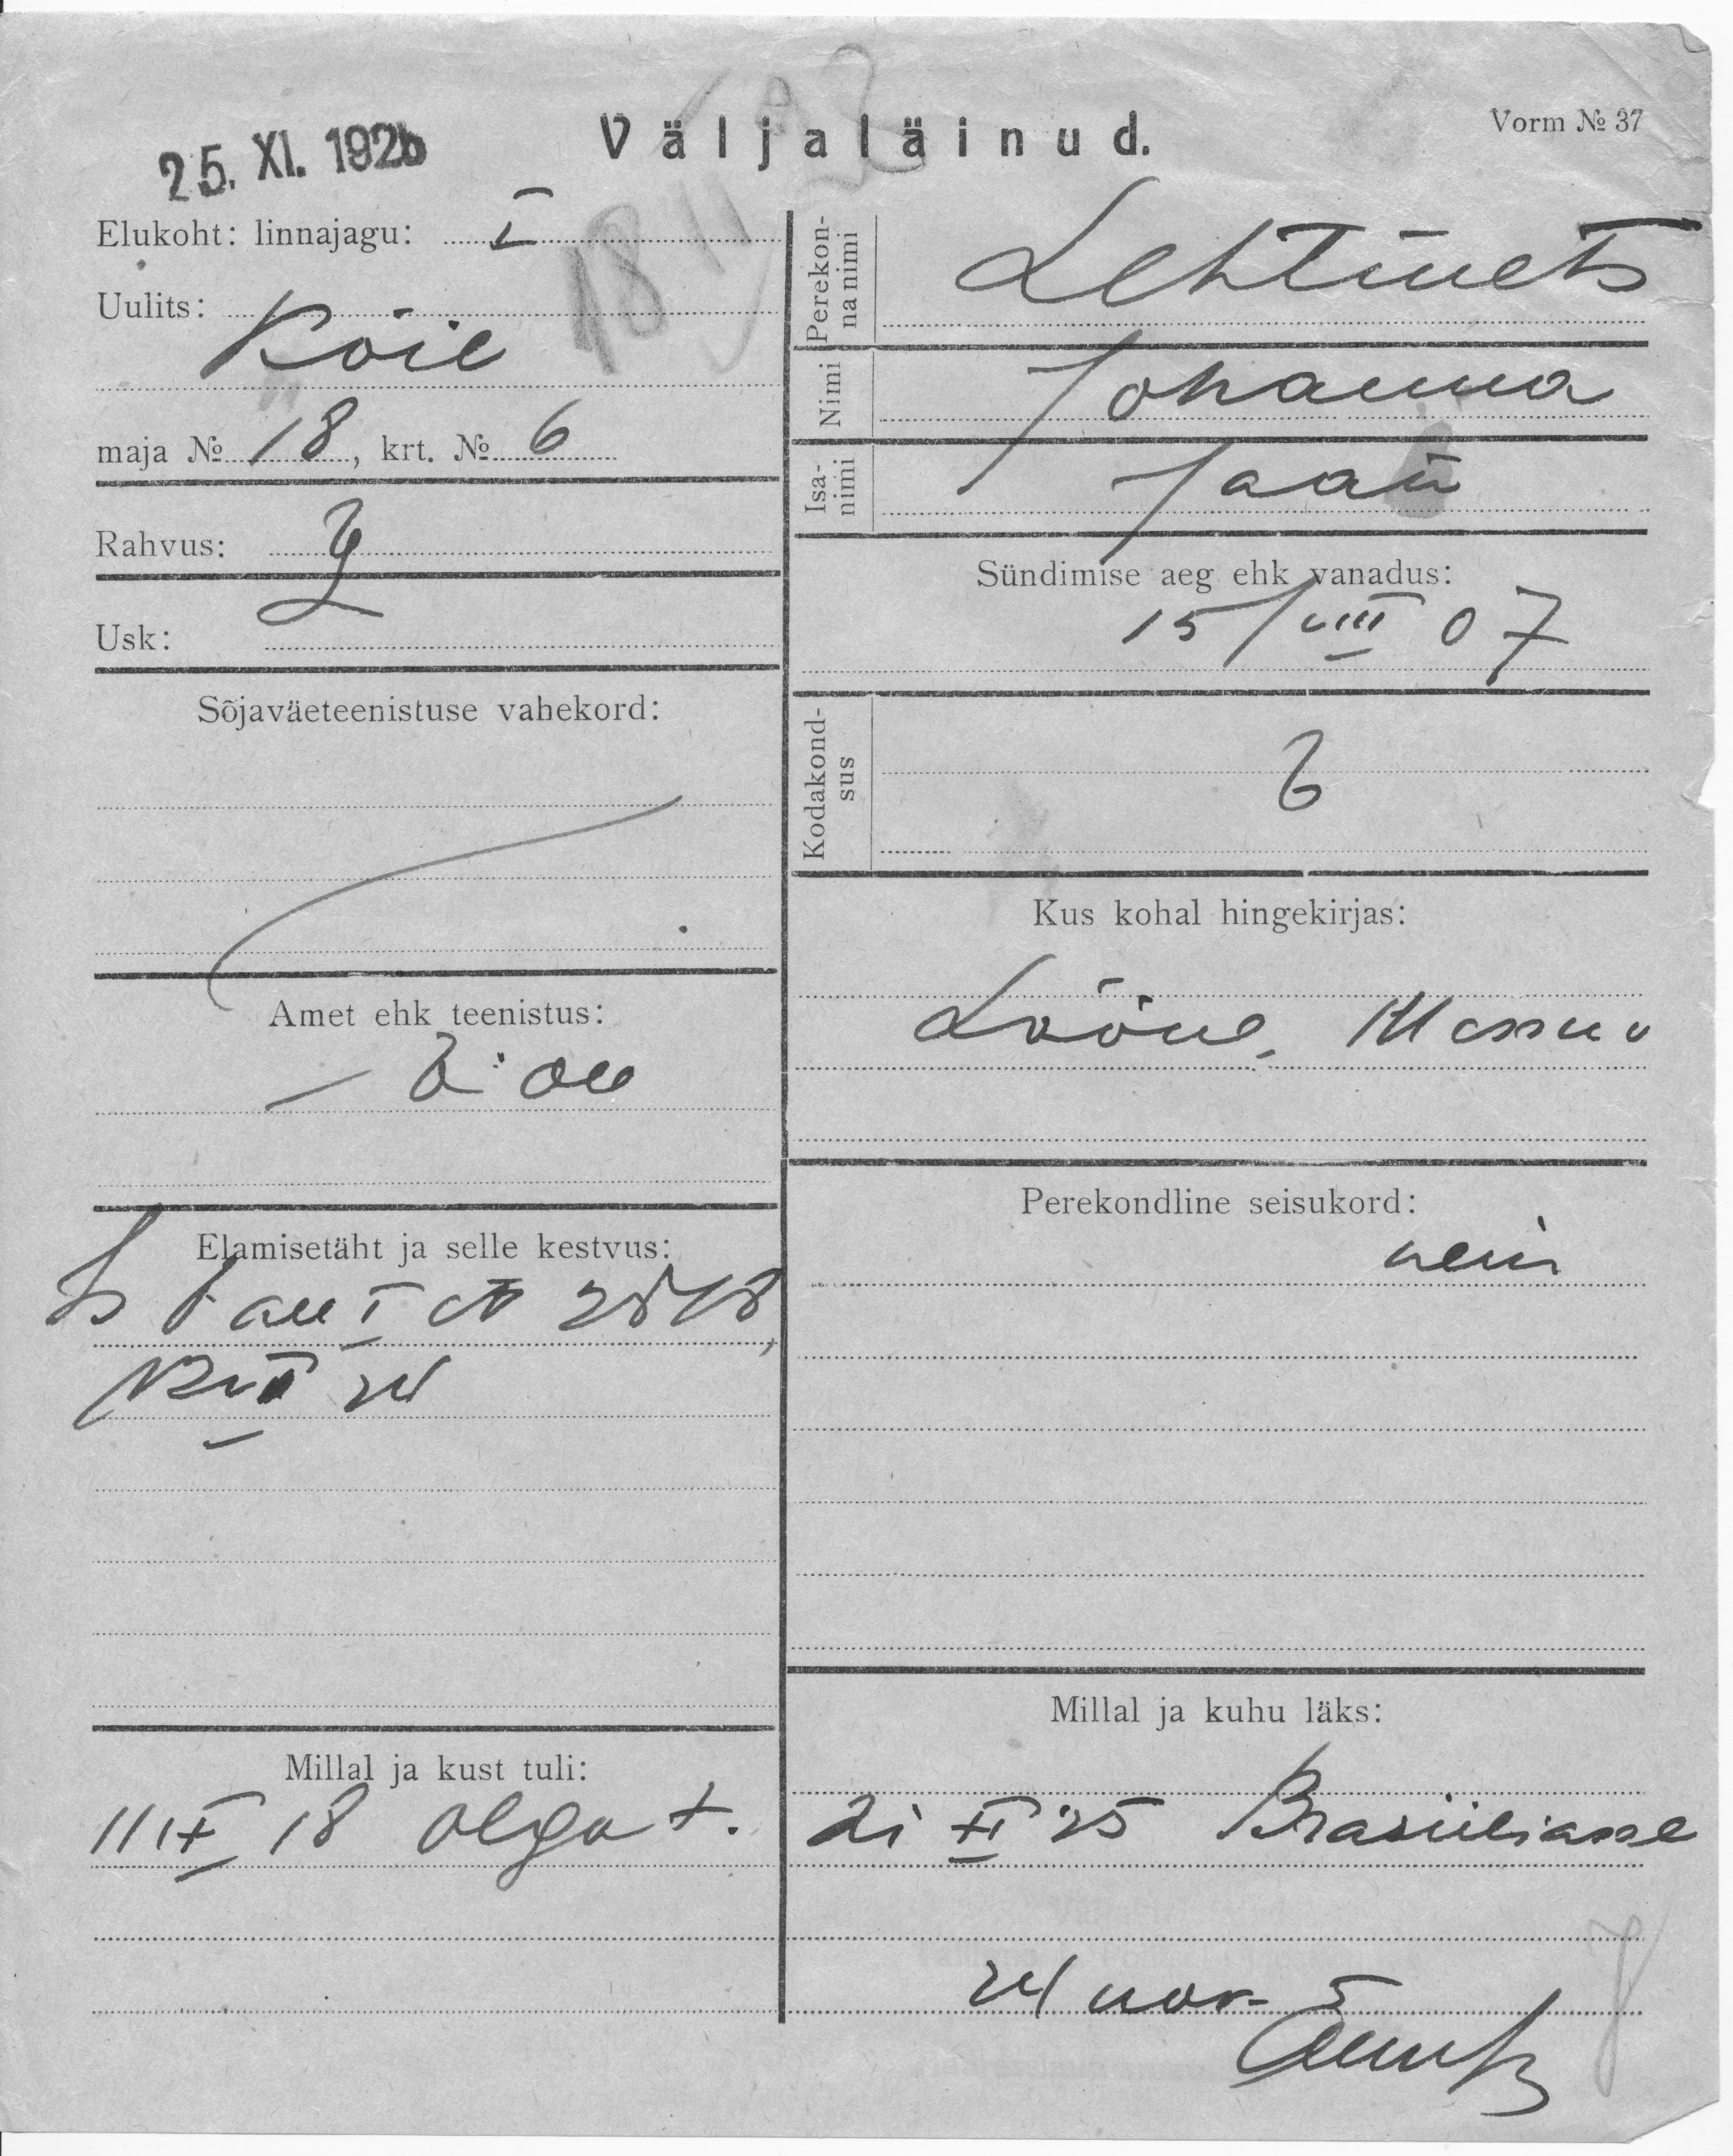 Väljaläinud.
Vorm № 37
25. XI. 1925
Elukoht: linnajagu: I
Uulits:
Köie
maja № 18, krt. № 6
Rahvus:
Usk:
Sõjaväeteenistuse vahekord:
Amet ehk teenistus:
Elamisetäht ja selle kestvus:
Millal ja kust tuli:
11 IX 18 Olga t.
Perekonna nimi
Lehtmets
Nimi
Johanna
Isanimi
Jaan
Sündimise aeg ehk vanadus:
15/VIII 07
Kodakondsus
Kus kohal hingekirjas:
Lääne,
Perekondline seisukord:
neiu
Millal ja kuhu läks:
21 XI 25 Brasiiliasse
24 nov. 5